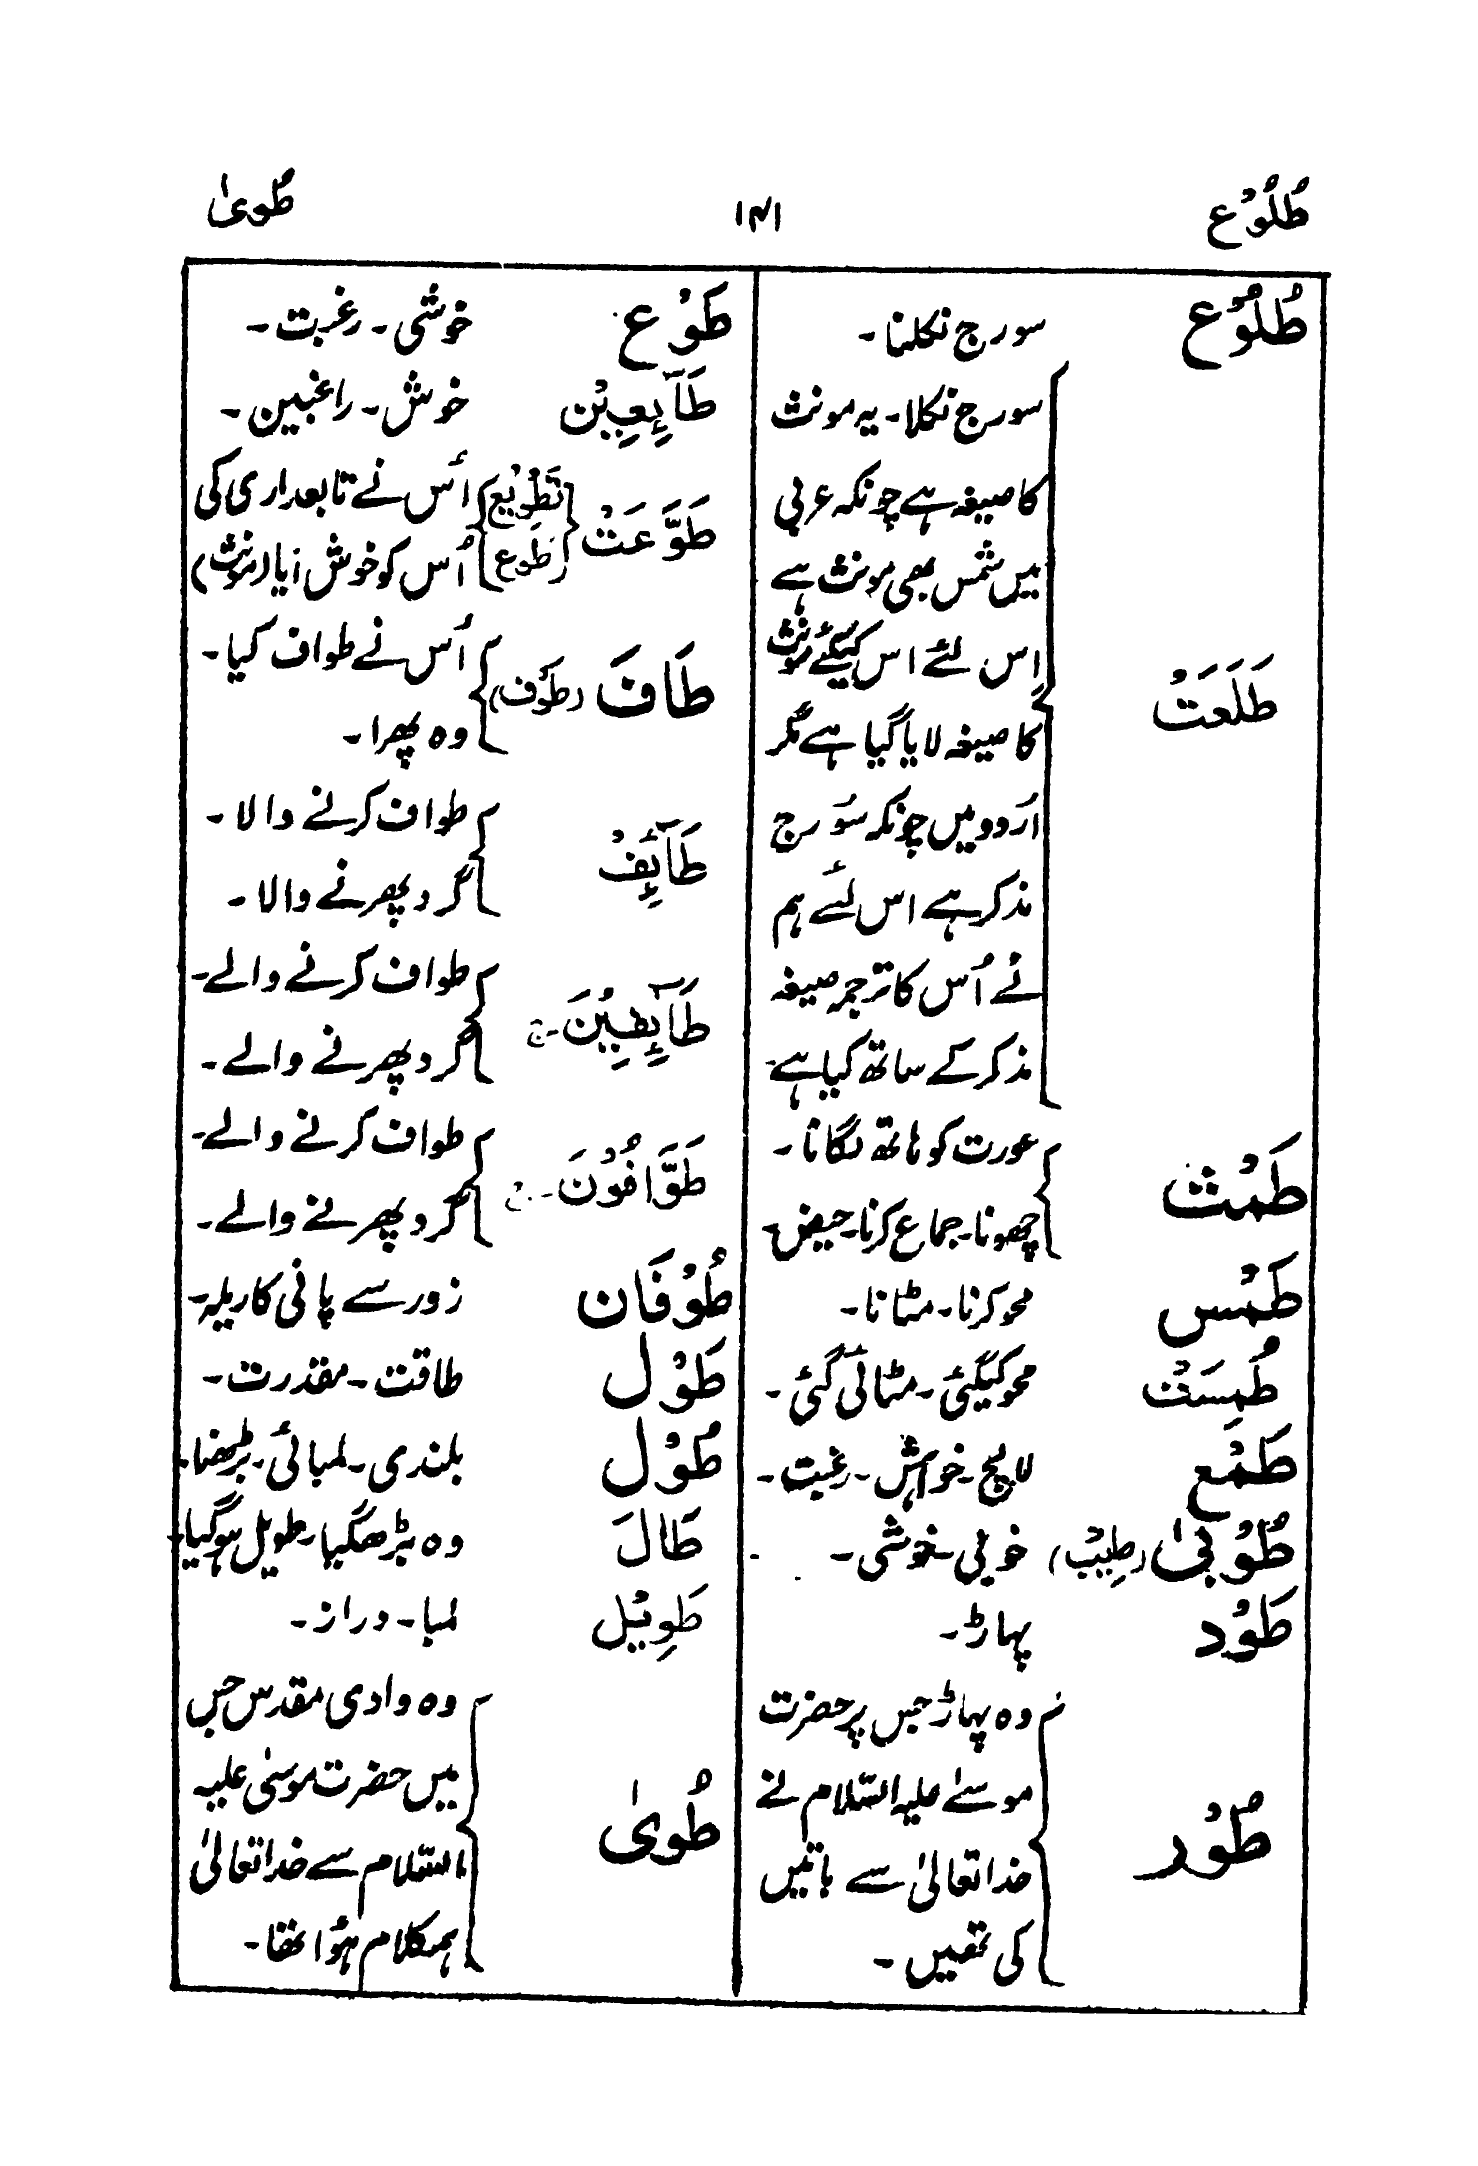 طُلُوْع ۱۴۱ طُویٰ
طُلُوْع سورج نکلنا۔
سورج نکلا۔ یہ مونث
کا صیغہ ہے چونکہ عربی
میں شمس بھی مونث ہے
اس لئے اس کیلئے مونث
طَلَعَتْ کا صیغہ لایا گیا ہے مگر
اردو میں چونکہ سورج
مذکر ہے اس لئے ہم
نے اُس کا ترجمہ صیغہ
مذکر کے ساتھ کیا ہے۔
طَمْث عورت کو ہاتھ لگانا۔
چھونا۔ جماع کرنا۔ حیض۔
طَمْس محو کرنا۔ مٹانا۔
طُمِسَتْ محو کیگئی۔ مٹائی گئی۔
طَمْع لالچ۔ خواہش۔ رغبت۔
طُوْبیٰ (طِیْب) خوبی۔ خوشی۔
طَوْد پہاڑ۔
وہ پہاڑ جس پر حضرت
موسےٰ علیہ السّلام نے
طُوْر خدا تعالیٰ سے باتیں
کی تھیں۔
طَوْع خوشی۔ رغبت۔
طَآئِعِیْن خوش۔ راغبین۔
طَوَّعَتْ (تَطْوِیْع) اُس نے تابعداری کی
(طَوْع) اُس کو خوش آیا (مونث)
طَافَ (طَوْف) اُس نے طواف کیا۔
وہ پھرا۔
طَآئِفْ طواف کرنے والا۔
گرد پھرنے والا۔
طَآئِفِیْنَ۔ج طواف کرنے والے۔
گرد پھرنے والے۔
طَوَّافُوْنَ۔ج طواف کرنے والے۔
گرد پھرنے والے۔
طُوْفَان زور سے پانی کا ریلہ۔
طَوْل طاقت۔ مقدرت۔
طُوْل بلندی۔ لمبائی۔ بڑھنا۔
طَالَ وہ بڑھ گیا۔ طویل ہوگیا۔
طَوِیْل لمبا۔ دراز۔
وہ وادی مقدس جس
میں حضرت موسیٰ علیہ
طُویٰ السّلام سے خدا تعالیٰ
ہمکلام ہؤا تھا۔